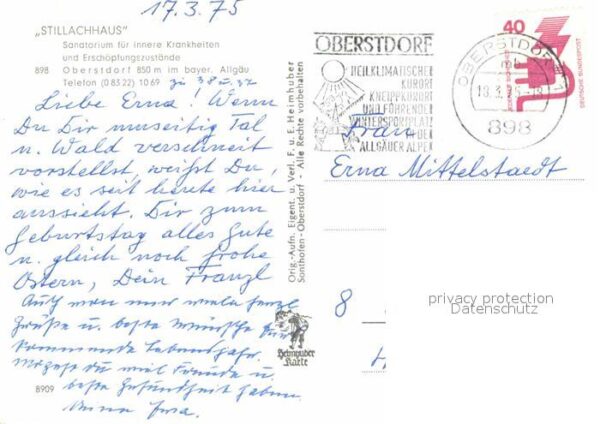 17.3.75
„STILLACHHAUS"
Sanatorium für innere Krankheiten
und Erschöpfungszustände
898 Oberstdorf 850 m im bayer. Allgäu
Telefon (0 83 22) 10 69
Liebe Erna! Wenn
Du Dir nur seitig Tal
u. Wald verschneit
vorstellst, weißt Du,
wie es seit heute hier
aussieht. Dir zum
Geburtstag alles Gute
u. gleich noch frohe
Ostern, Dein Franzl
Auch von mir viele herzl.
Grüße u. beste Wünsche fürs
kommende Lebensjahr.
Mögest du viel Freude u.
beste Gesundheit haben.
8909
Orig.-Aufn. Eigent. u. Verl. F. u. E. Heimhuber
Sonthofen-Oberstdorf - Alle Rechte vorbehalten
Heimhuber
Karte
OBERSTDORF
HEILKLIMATISCHER
KURORT
KNEIPPKURORT
UND FÜHRENDER
WINTERSPORTPLATZ
DER
ALLGÄUER ALPEN
OBERSTDORF 1
898
40
DEUTSCHE BUNDESPOST
Frau
Erna Mittelstaedt
8
privacy protection
Datenschutz